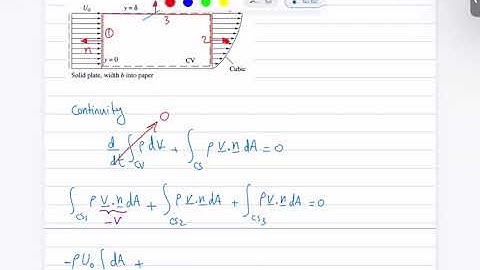 U₀ y = δ
3
n ① 2
y = 0 CV
Cubic
Solid plate, width b into paper
Continuity
0
d/dt ∫_CV ρ dV + ∫_CS ρ V·n dA = 0
∫_CS1 ρ V·n dA + ∫_CS2 ρ V·n dA + ∫_CS3 ρ V·n dA = 0
-V
-ρ U₀ ∫ dA +